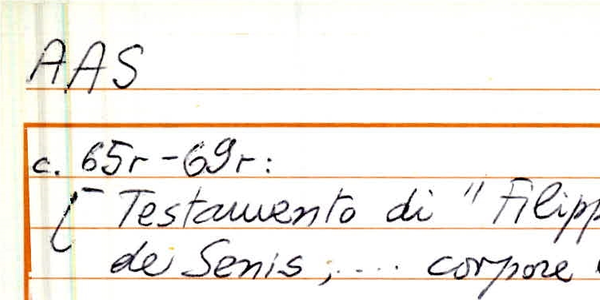 AAS
c. 65r-69r:
[- Testamento di "Filipp
de Senis, .... corpore